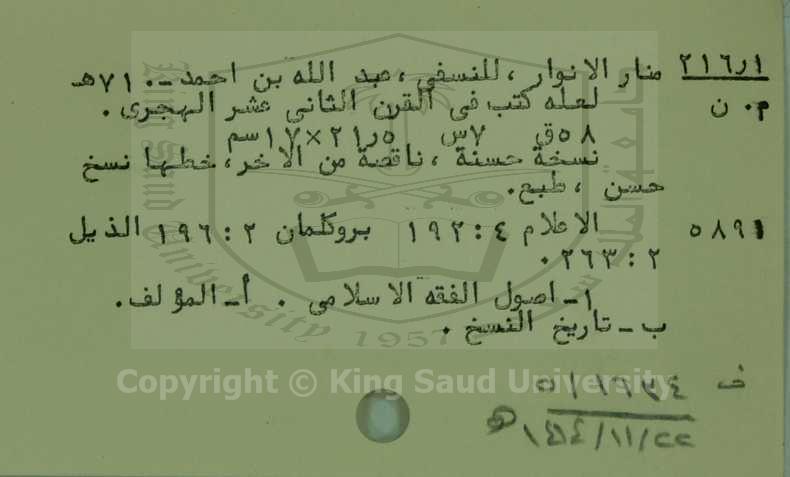 ٢١٦ر١ منار الانوار ، للنسفي ، عبد الله بن احمد ـ ٧١٠هـ
م ٠ ن لعله كتب فى القرن الثاني عشر الهجرى .
٥٨ق ٧س ٢١ر٥×١٧سم
نسخة حسنة ، ناقصة من الآخر ، خطها نسخ
حسن ، طبع.
٥٨٩١ الاعلام ٤ : ١٩٢ بروكلمان ٢ : ١٩٦ الذيل
٢ : ٢٦٣ .
١ـ اصول الفقه الاسلامى . أـ المؤلف.
ب ـ تاريخ النسخ .
Copyright © King Saud University
ف
King Saud University
1957